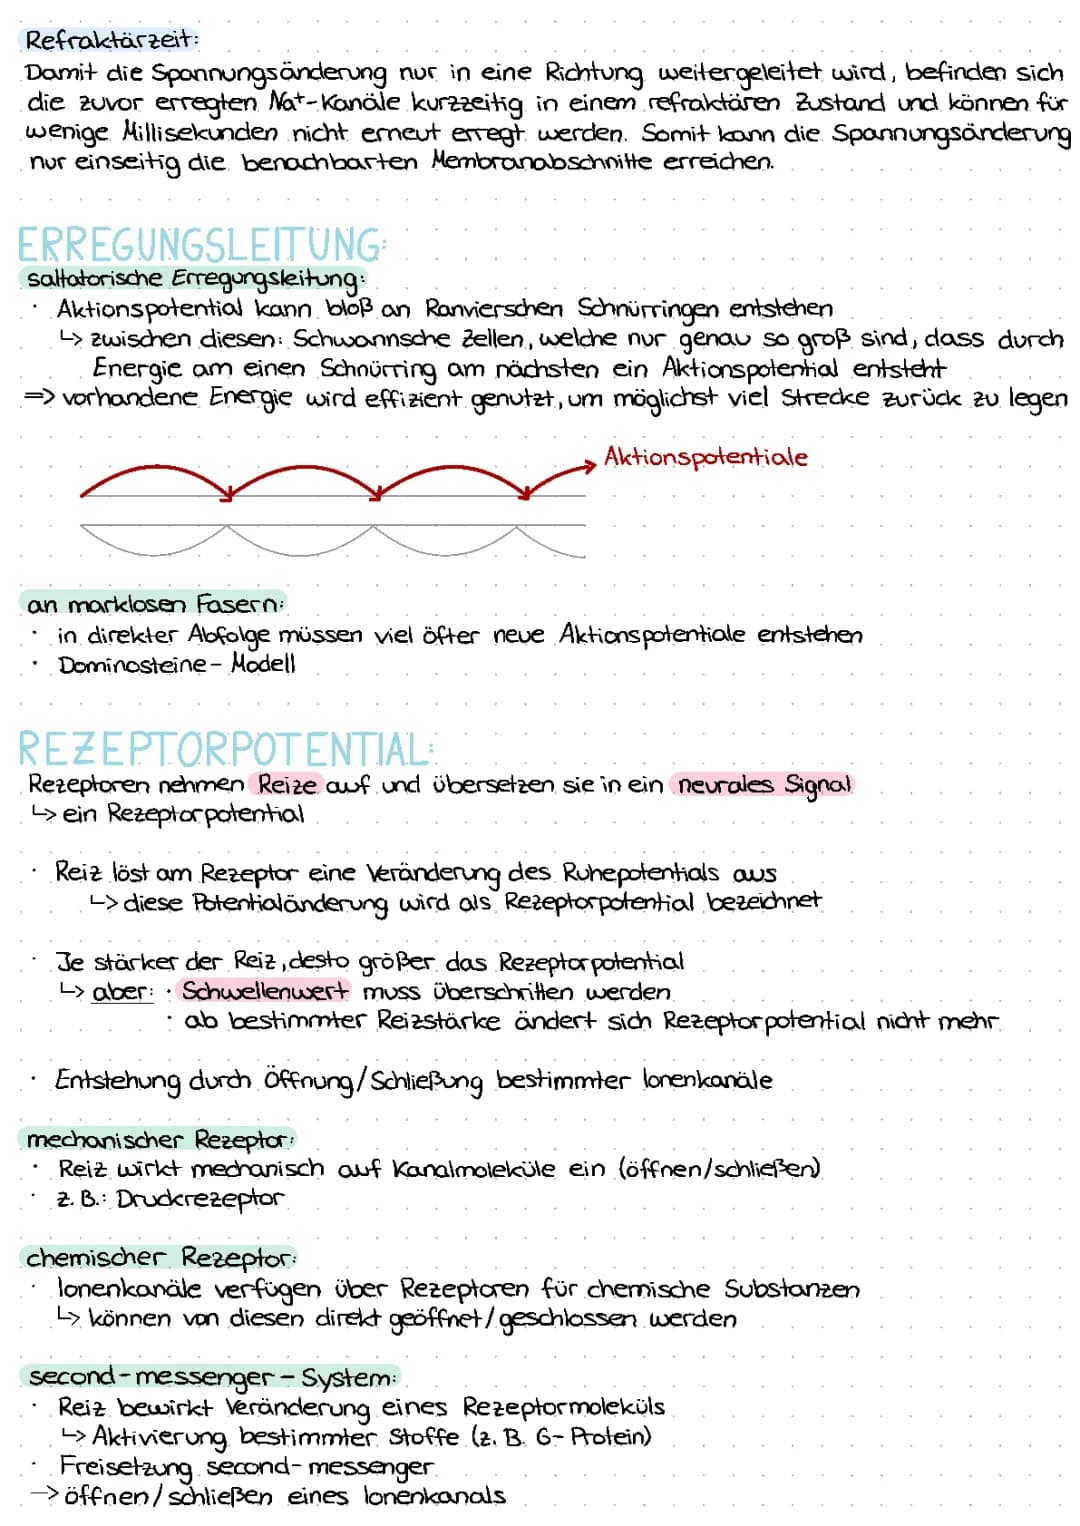 Refraktärzeit:
Damit die Spannungsänderung nur in eine Richtung weitergeleitet wird, befinden sich
die zuvor erregten Na⁺-Kanäle kurzzeitig in einem refraktären Zustand und können für
wenige Millisekunden nicht erneut erregt werden. Somit kann die Spannungsänderung
nur einseitig die benachbarten Membranabschnitte erreichen.
ERREGUNGSLEITUNG:
saltatorische Erregungsleitung:
· Aktionspotential kann bloß an Ranvierschen Schnürringen entstehen
↳ zwischen diesen: Schwannsche Zellen, welche nur genau so groß sind, dass durch
Energie am einen Schnürring am nächsten ein Aktionspotential entsteht
=> vorhandene Energie wird effizient genutzt, um möglichst viel Strecke zurück zu legen
Aktionspotentiale
an marklosen Fasern:
· in direkter Abfolge müssen viel öfter neue Aktionspotentiale entstehen
· Dominosteine - Modell
REZEPTORPOTENTIAL:
Rezeptoren nehmen Reize auf und übersetzen sie in ein neurales Signal
↳ ein Rezeptorpotential
· Reiz löst am Rezeptor eine Veränderung des Ruhepotentials aus
↳ diese Potentialänderung wird als Rezeptorpotential bezeichnet
· Je stärker der Reiz, desto größer das Rezeptorpotential
↳ aber: · Schwellenwert muss überschritten werden
· ab bestimmter Reizstärke ändert sich Rezeptorpotential nicht mehr
· Entstehung durch Öffnung/Schließung bestimmter Ionenkanäle
mechanischer Rezeptor:
· Reiz wirkt mechanisch auf Kanalmoleküle ein (öffnen/schließen)
· z. B.: Druckrezeptor
chemischer Rezeptor:
· Ionenkanäle verfügen über Rezeptoren für chemische Substanzen
↳ können von diesen direkt geöffnet/geschlossen werden
second-messenger - System:
· Reiz bewirkt Veränderung eines Rezeptormoleküls
↳ Aktivierung bestimmter Stoffe (z. B. G- Protein)
· Freisetzung second-messenger
→ öffnen/schließen eines Ionenkanals